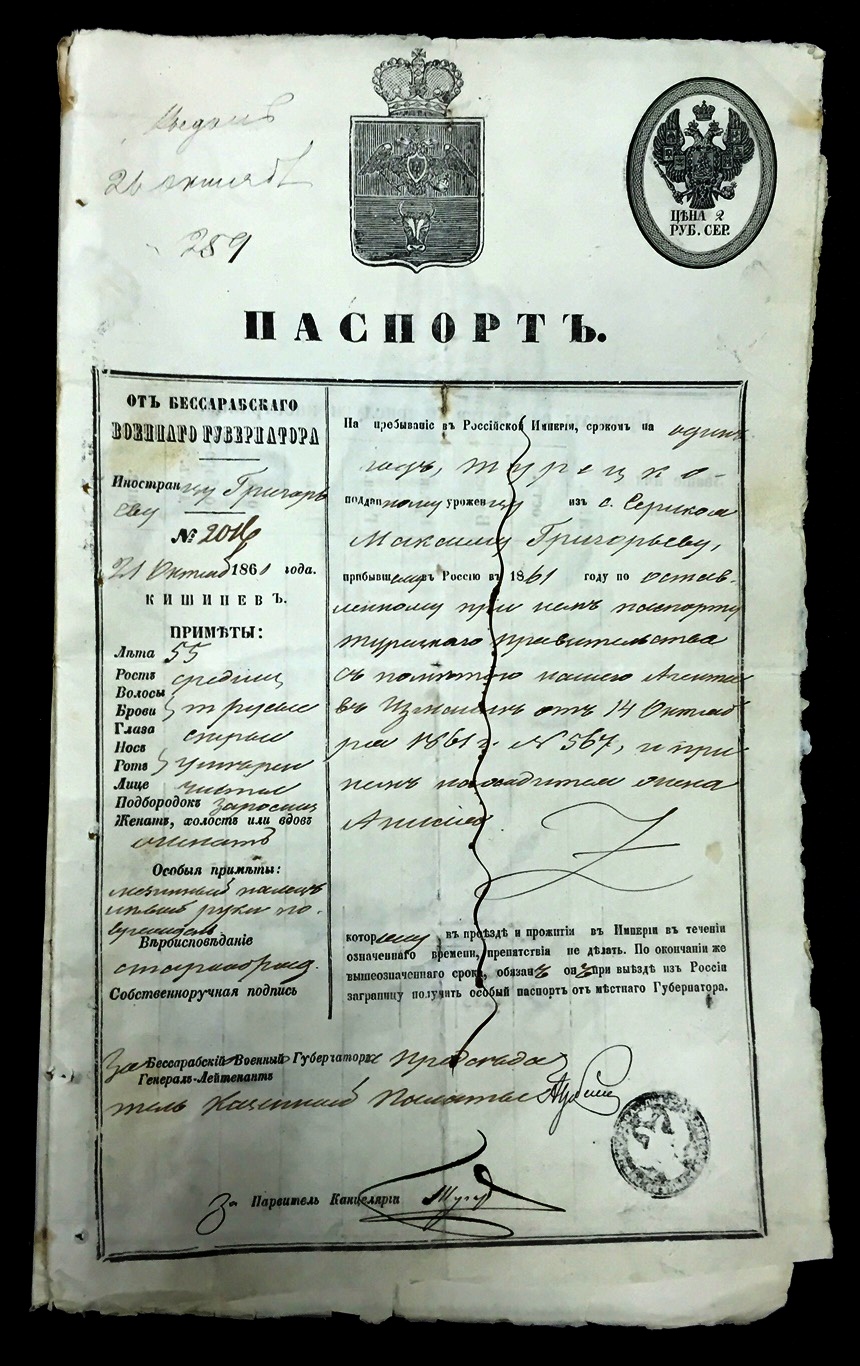 26 октября
289
ЦѢНА 2
РУБ. СЕР.
ПАСПОРТЪ.
ОТЪ БЕССАРАБСКАГО
ВОЕННАГО ГУБЕРНАТОРА
Иностранцу Григорь
еву
№ 2016
21 Октяб 1861 года.
КИШИНЕВЪ.
ПРИМѢТЫ:
Лѣта 55
Ростъ средній
Волосы
Брови } т русые
Глаза сѣрые
Носъ
Ротъ } умѣрен
Лице чистое
Подбородокъ
Женатъ, холостъ или вдовъ
женатъ
Особыя примѣты:
палецъ
лѣвой руки по-
Вѣроисповѣданіе
старообряд.
Собственноручная подпись
На пребываніе въ Россійской Имперіи, срокомъ на одинъ
годъ, турецко-
подданному уроженцу изъ с.
Максиму Григорьеву,
прибывшему въ Россію въ 1861 году по остав-
ленному при немъ паспорту
турецкаго правительства
съ помѣтою нашего Агента
въ Измаилѣ отъ 14 Октяб
ря 1861 г. № 567, и при
немъ находится жена
которому въ проѣздѣ и прожитіи въ Имперіи въ теченіи
означеннаго времени, препятствія не дѣлать. По окончаніи же
вышеозначеннаго срока, обязанъ онъ при выѣздѣ изъ Россіи
заграницу получить особый паспортъ отъ мѣстнаго Губернатора.
За Бессарабскій Военный Губернаторъ Предсѣда
Генералъ-Лейтенантъ
тель Казенной Палаты
За Парвитель Канцеляріи